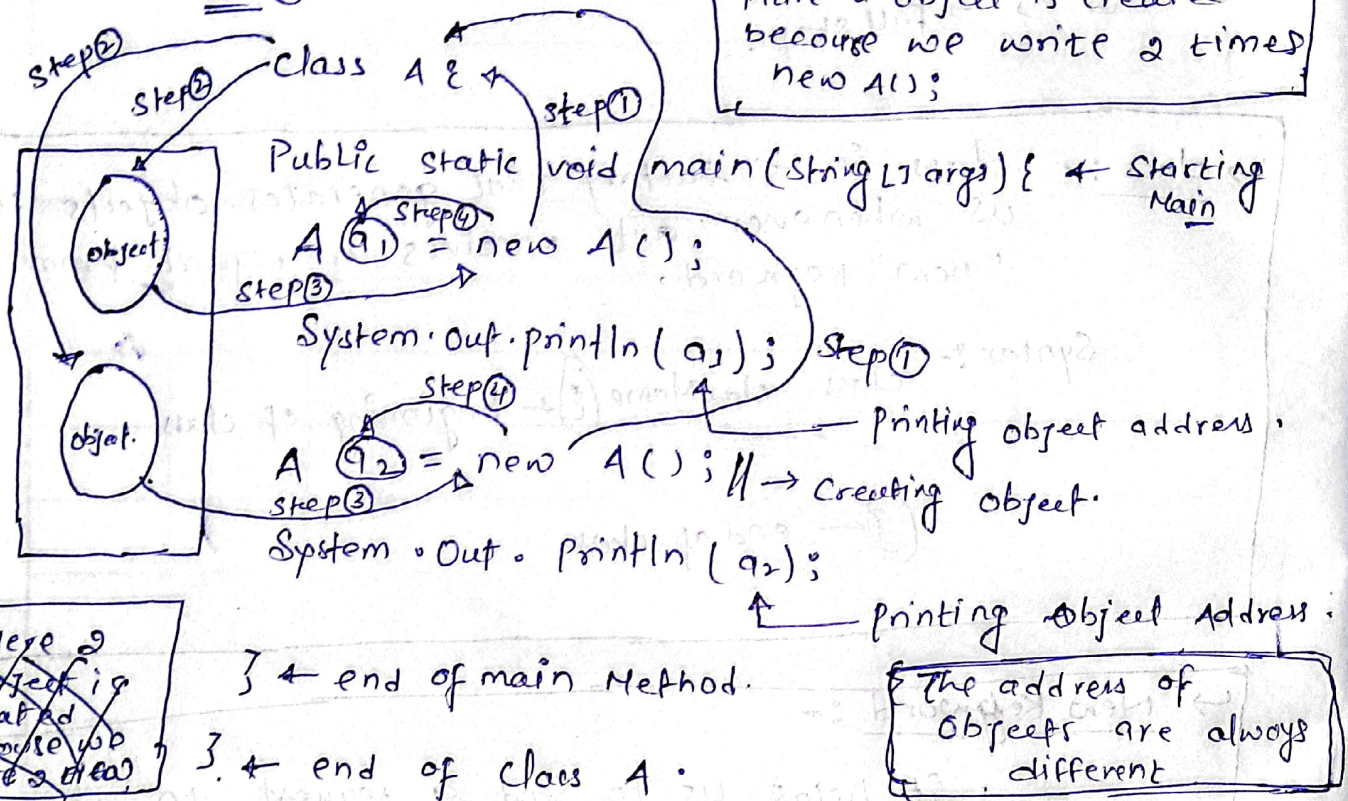 because we write 2 times
new A();
Step②
Step②
class A {
Step①
Public static void main (String [] args) { ← Starting
Main
Step④
object
A a1 = new A();
Step③
System.out.println(a1);
Step①
Step④
Printing object address.
object.
A a2 = new A(); // → Creating object.
Step③
System.Out.Println (a2);
Printing Object Address.
} ← end of main Method.
} ← end of class A.
The address of
Objects are always
different